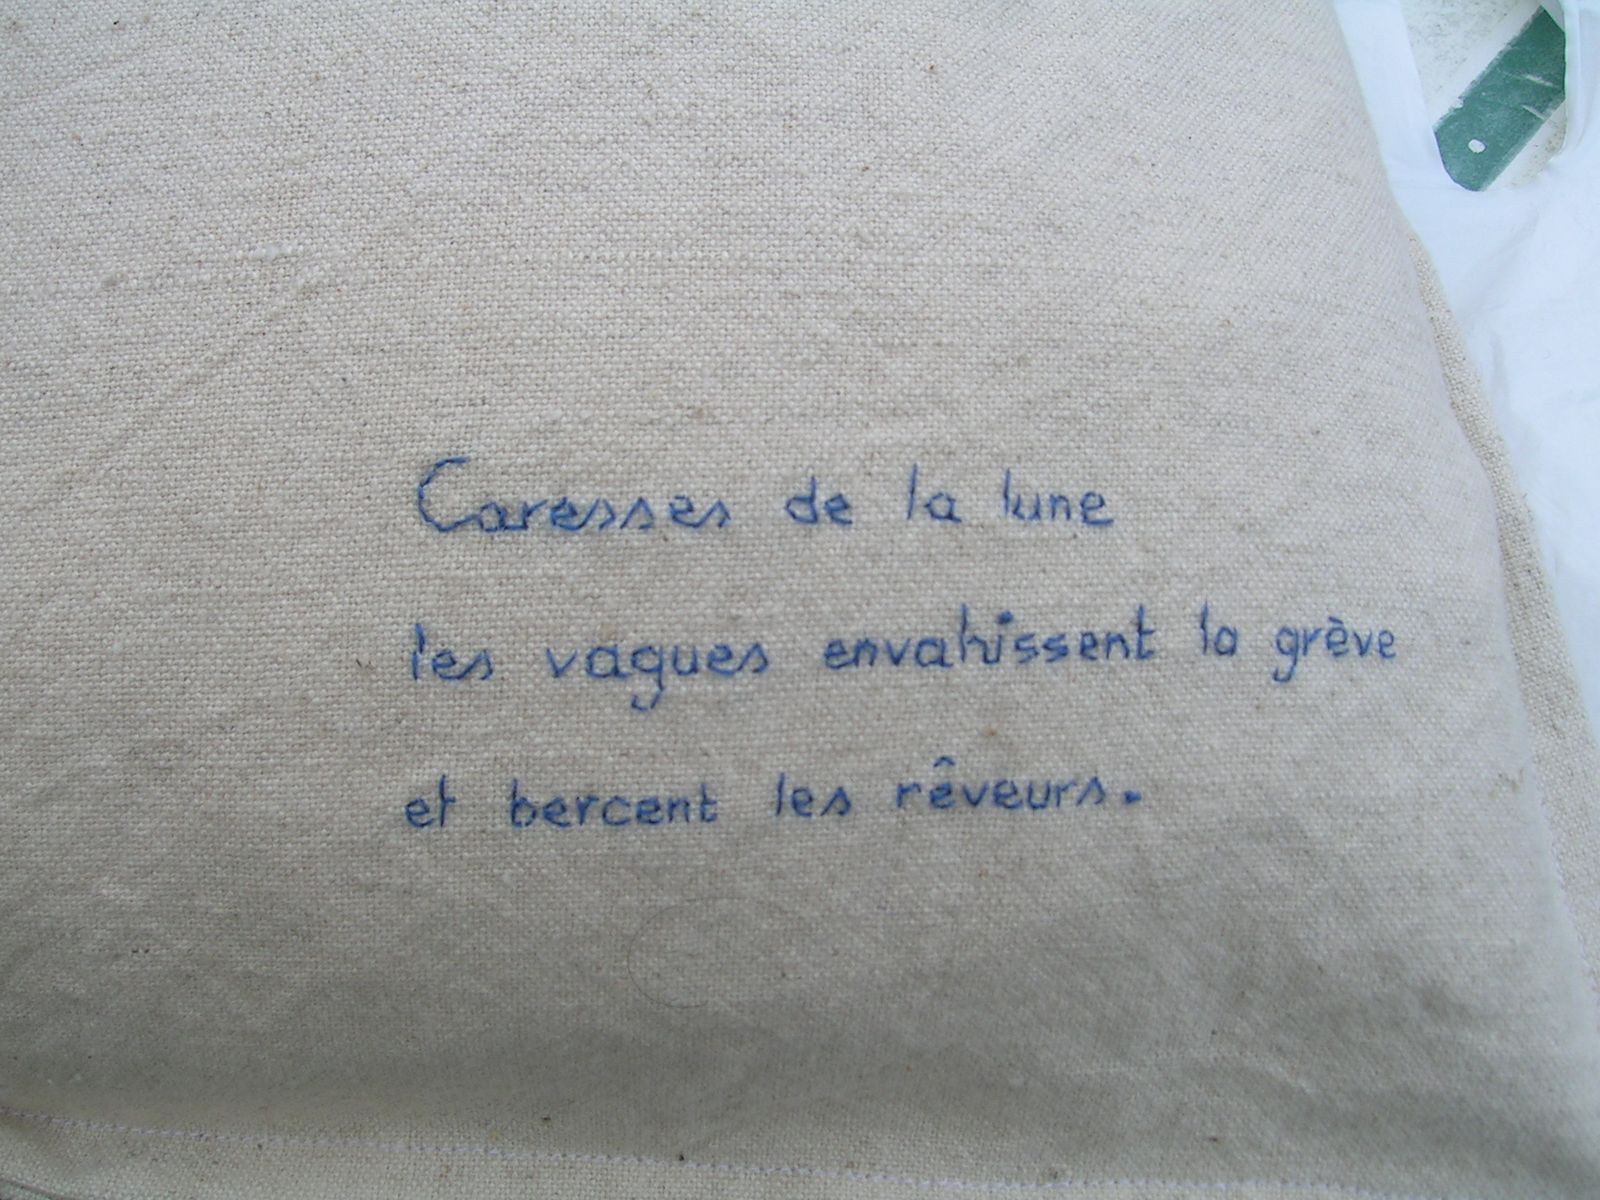 Caresses de la lune
les vagues envahissent la grève
et bercent les rêveurs.